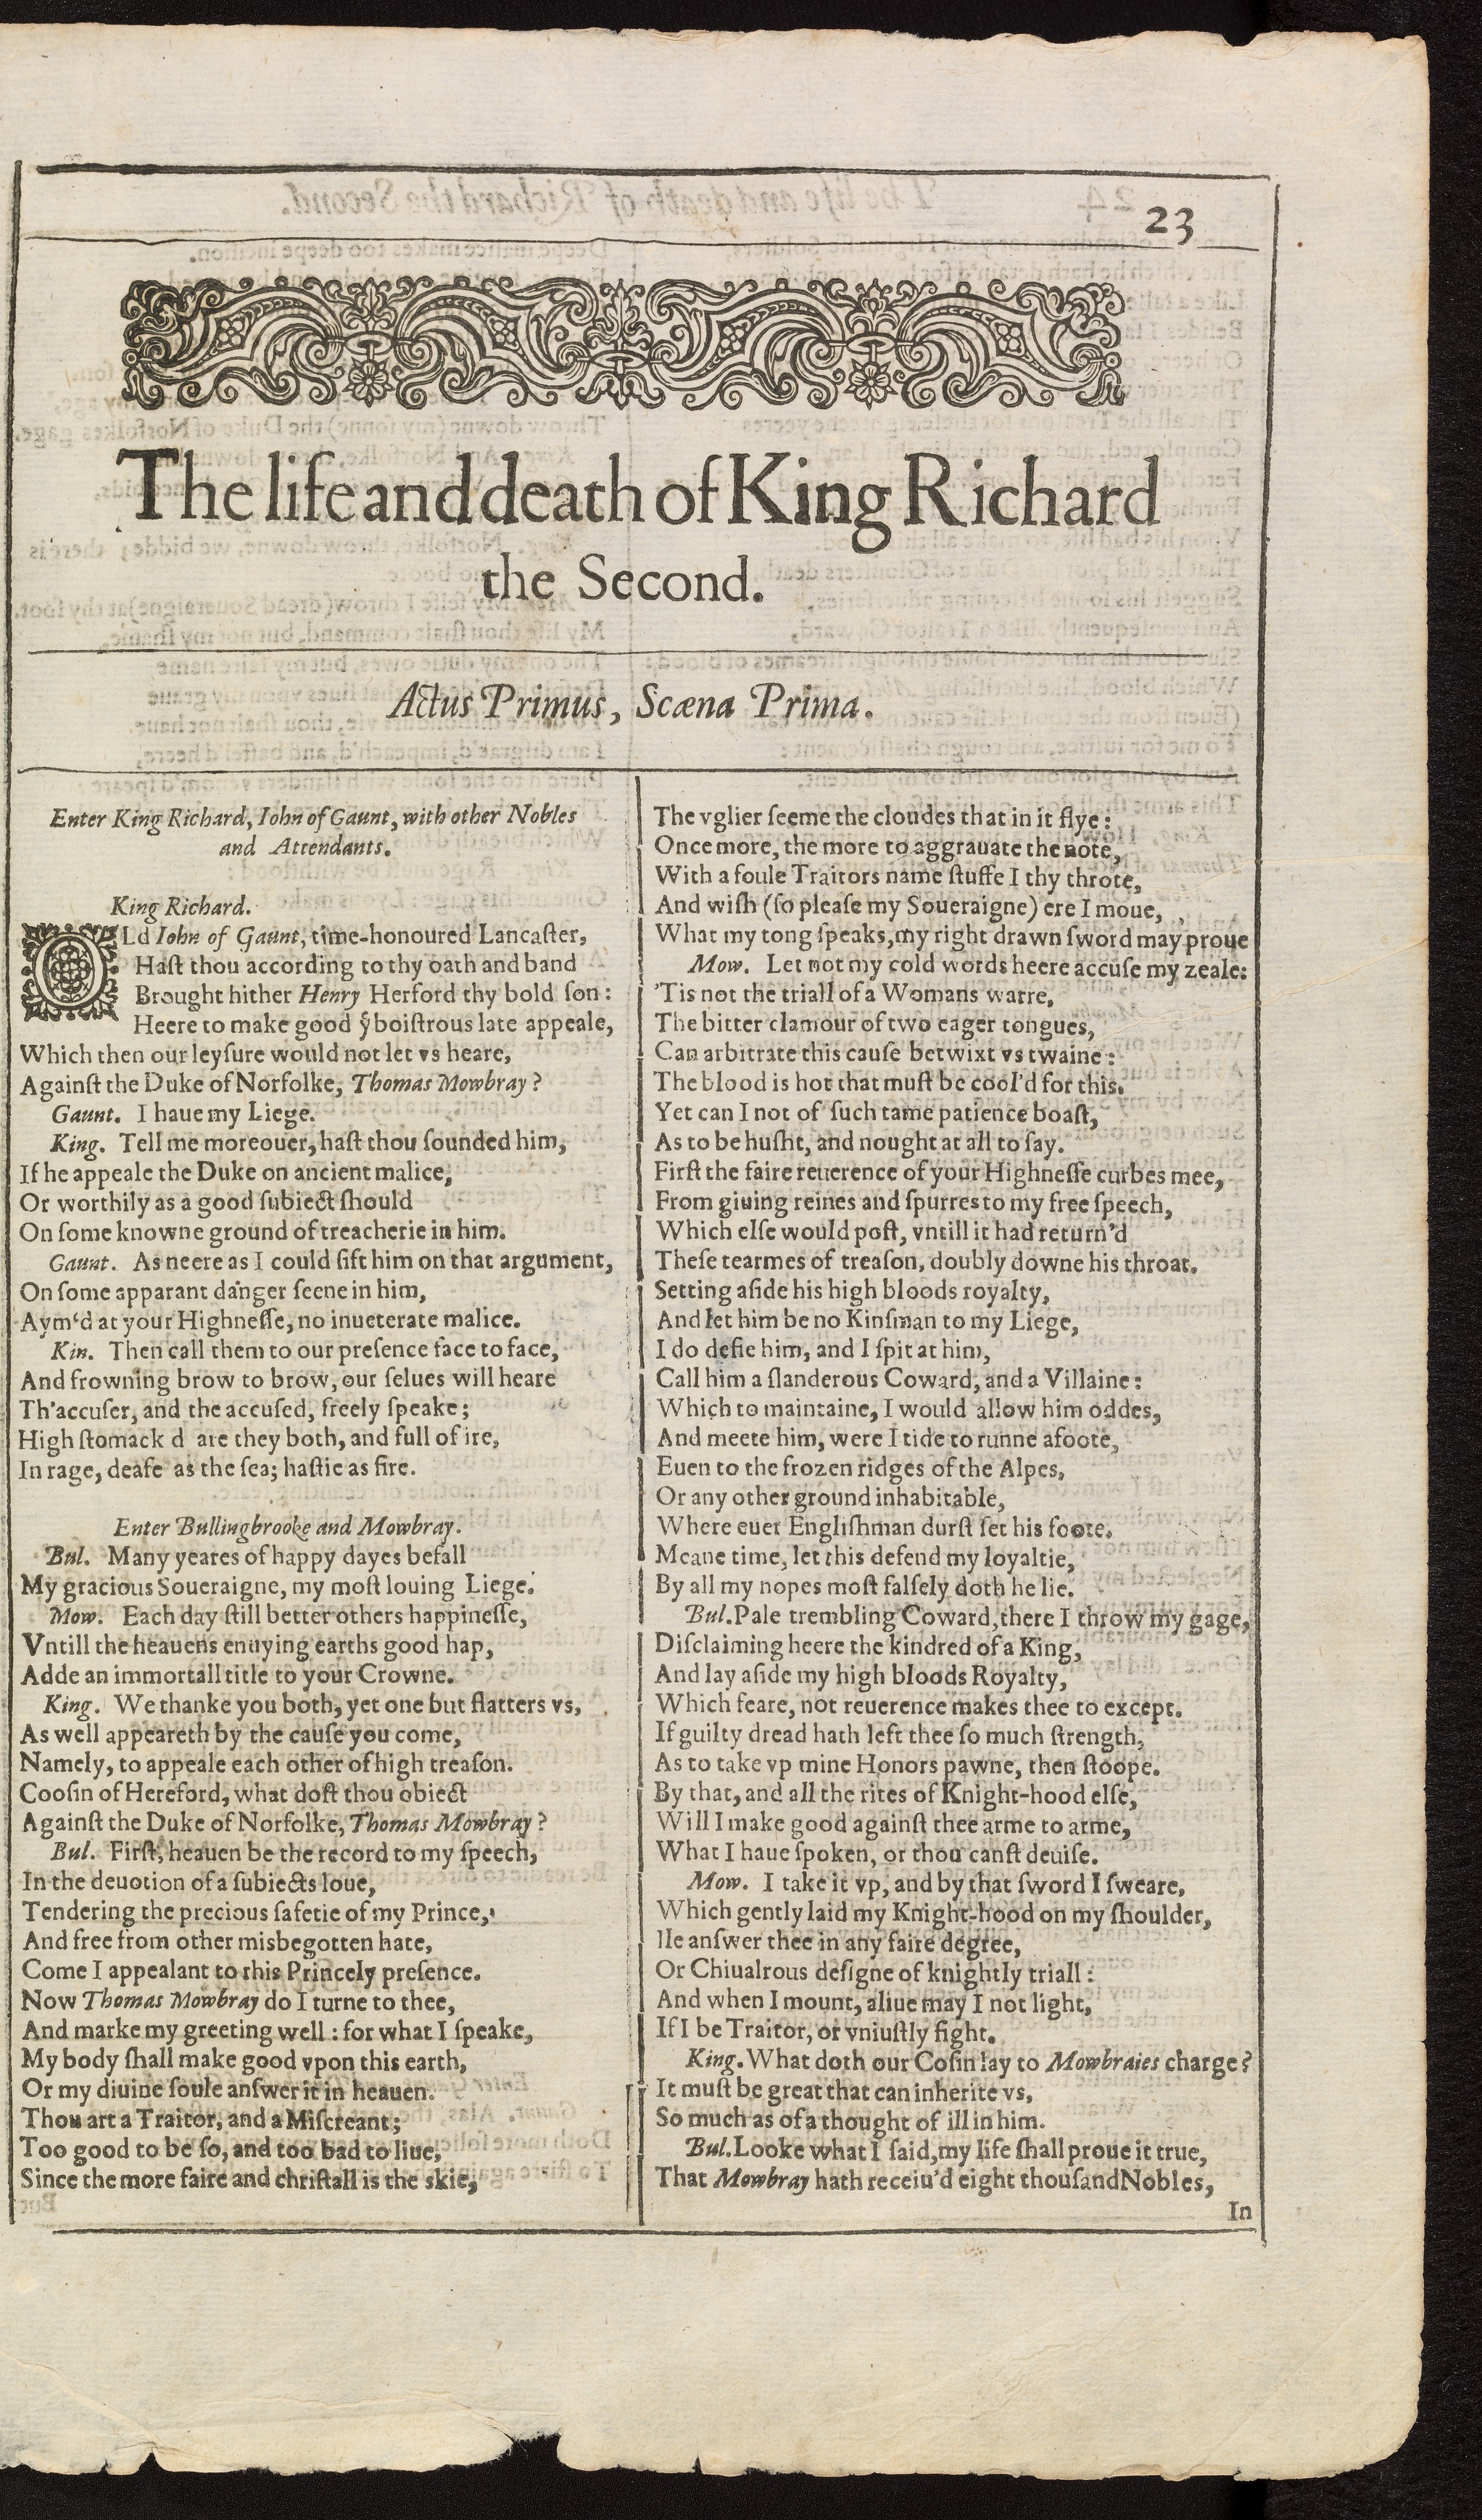 23
The life and death of King Richard
the Second.
Actus Primus, Scæna Prima.
Enter King Richard, Iohn of Gaunt, with other Nobles
and Attendants.
King Richard.
OLd Iohn of Gaunt, time-honoured Lancaſter,
Haſt thou according to thy oath and band
Brought hither Henry Herford thy bold ſon:
Heere to make good yͤ boiſtrous late appeale,
Which then our leyſure would not let vs heare,
Againſt the Duke of Norfolke, Thomas Mowbray?
Gaunt. I haue my Liege.
King. Tell me moreouer, haſt thou ſounded him,
If he appeale the Duke on ancient malice,
Or worthily as a good ſubiect ſhould
On ſome knowne ground of treacherie in him.
Gaunt. As neere as I could ſift him on that argument,
On ſome apparant danger ſeene in him,
Aym‘d at your Highneſſe, no inueterate malice.
Kin. Then call them to our preſence face to face,
And frowning brow to brow, our ſelues will heare
Th'accuſer, and the accuſed, freely ſpeake;
High ſtomack d are they both, and full of ire,
In rage, deafe as the ſea; haſtie as fire.
Enter Bullingbrooke and Mowbray.
Bul. Many yeares of happy dayes befall
My gracious Soueraigne, my moſt louing Liege.
Mow. Each day ſtill better others happineſſe,
Vntill the heauens enuying earths good hap,
Adde an immortall title to your Crowne.
King. We thanke you both, yet one but flatters vs,
As well appeareth by the cauſe you come,
Namely, to appeale each other of high treaſon.
Cooſin of Hereford, what doſt thou obiect
Againſt the Duke of Norfolke, Thomas Mowbray?
Bul. Firſt, heauen be the record to my ſpeech,
In the deuotion of a ſubiects loue,
Tendering the precious ſafetie of my Prince,
And free from other misbegotten hate,
Come I appealant to this Princely preſence.
Now Thomas Mowbray do I turne to thee,
And marke my greeting well: for what I ſpeake,
My body ſhall make good vpon this earth,
Or my diuine ſoule anſwer it in heauen.
Thou art a Traitor, and a Miſcreant;
Too good to be ſo, and too bad to liue,
Since the more faire and chriſtall is the skie,
The vglier ſeeme the cloudes that in it flye:
Once more, the more to aggrauate the note,
With a foule Traitors name ſtuffe I thy throte,
And wiſh (ſo pleaſe my Soueraigne) ere I moue,
What my tong ſpeaks, my right drawn ſword may proue
Mow. Let not my cold words heere accuſe my zeale:
'Tis not the triall of a Womans warre,
The bitter clamour of two eager tongues,
Can arbitrate this cauſe betwixt vs twaine:
The blood is hot that muſt be cool'd for this.
Yet can I not of ſuch tame patience boaſt,
As to be huſht, and nought at all to ſay.
Firſt the faire reuerence of your Highneſſe curbes mee,
From giuing reines and ſpurres to my free ſpeech,
Which elſe would poſt, vntill it had return'd
Theſe tearmes of treaſon, doubly downe his throat.
Setting aſide his high bloods royalty,
And let him be no Kinſman to my Liege,
I do defie him, and I ſpit at him,
Call him a ſlanderous Coward, and a Villaine:
Which to maintaine, I would allow him oddes,
And meete him, were I tide to runne afoote,
Euen to the frozen ridges of the Alpes,
Or any other ground inhabitable,
Where euer Engliſhman durſt ſet his foote.
Meane time, let this defend my loyaltie,
By all my hopes moſt falſely doth he lie.
Bul. Pale trembling Coward, there I throw my gage,
Diſclaiming heere the kindred of a King,
And lay aſide my high bloods Royalty,
Which feare, not reuerence makes thee to except.
If guilty dread hath left thee ſo much ſtrength,
As to take vp mine Honors pawne, then ſtoope.
By that, and all the rites of Knight-hood elſe,
Will I make good againſt thee arme to arme,
What I haue ſpoken, or thou canſt deuiſe.
Mow. I take it vp, and by that ſword I ſweare,
Which gently laid my Knight-hood on my ſhoulder,
Ile anſwer thee in any faire degree,
Or Chiualrous deſigne of knightly triall:
And when I mount, aliue may I not light,
If I be Traitor, or vniuſtly fight.
King. What doth our Coſin lay to Mowbraies charge?
It muſt be great that can inherite vs,
So much as of a thought of ill in him.
Bul. Looke what I ſaid, my life ſhall proue it true,
That Mowbray hath receiu'd eight thouſand Nobles,
In